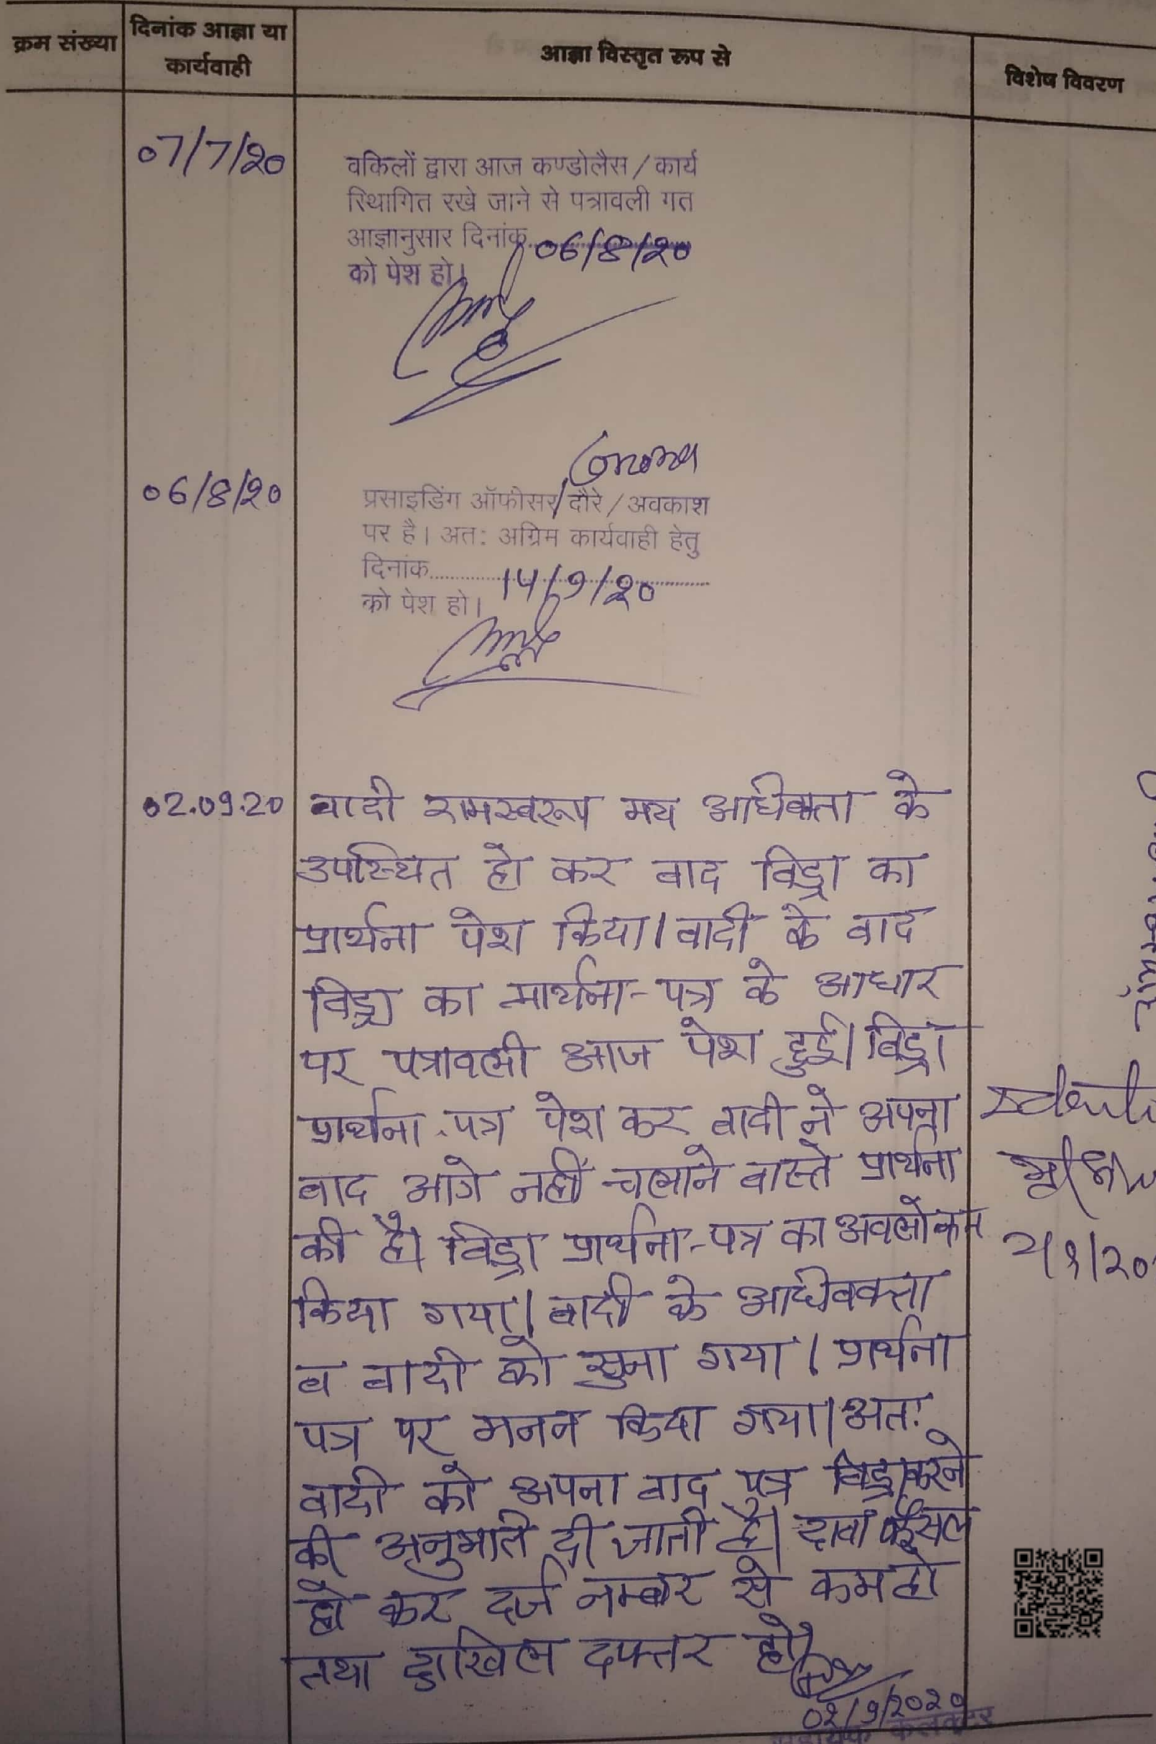 क्रम संख्या
दिनांक आज्ञा या
कार्यवाही
आज्ञा विस्तृत रूप से
विशेष विवरण
07/7/20
वकिलों द्वारा आज कण्डोलैस / कार्य
स्थिागित रखे जाने से पत्रावली गत
आज्ञानुसार दिनांक 06/8/20
को पेश हो।
06/8/20
प्रसाइडिंग ऑफीसर/दौरे / अवकाश
पर है। अत: अग्रिम कार्यवाही हेतु
दिनांक 14/9/20
को पेश हो।
02.09.20
वादी रामस्वरूप मय अधिवक्ता के
उपस्थित हो कर वाद विड्रा का
प्रार्थना पेश किया। वादी के वाद
विड्रा का प्रार्थना-पत्र के आधार
पर पत्रावली आज पेश हुई। विड्रा
प्रार्थना-पत्र पेश कर वादी ने अपना
वाद आगे नहीं चलाने वास्ते प्रार्थना
की है। विड्रा प्रार्थना-पत्र का अवलोकन
किया गया। वादी के अधिवक्ता
व वादी को सुना गया। प्रार्थना
पत्र पर मनन किया गया। अतः
वादी को अपना वाद पत्र विड्रा करने
की अनुमति दी जाती है। दावा फैसल
हो कर दर्ज नम्बर से कम हो
तथा दाखिल दफ्तर हो।
02/9/2020
सहायक कलक्टर